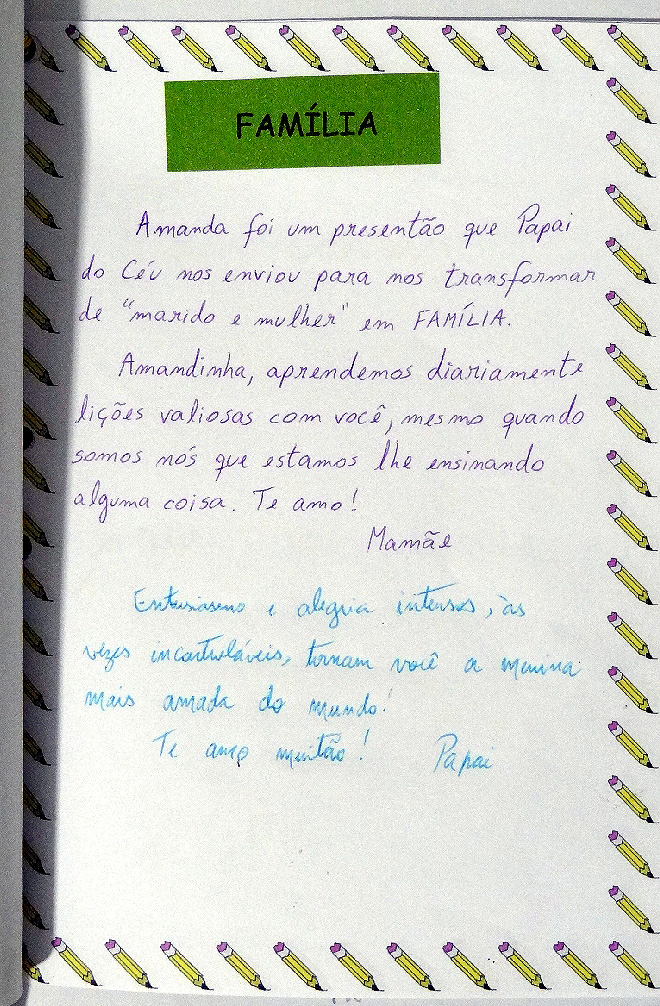 FAMÍLIA
Amanda foi um presentão que Papai
do Céu nos enviou para nos transformar
de "marido e mulher" em FAMÍLIA.
Amandinha, aprendemos diariamente
lições valiosas com você, mesmo quando
somos nós que estamos lhe ensinando
alguma coisa. Te amo!
Mamãe
Entusiasmo e alegria intensos, às
vezes incontroláveis, tornam você a menina
mais amada do mundo!
Te amo muitão! Papai